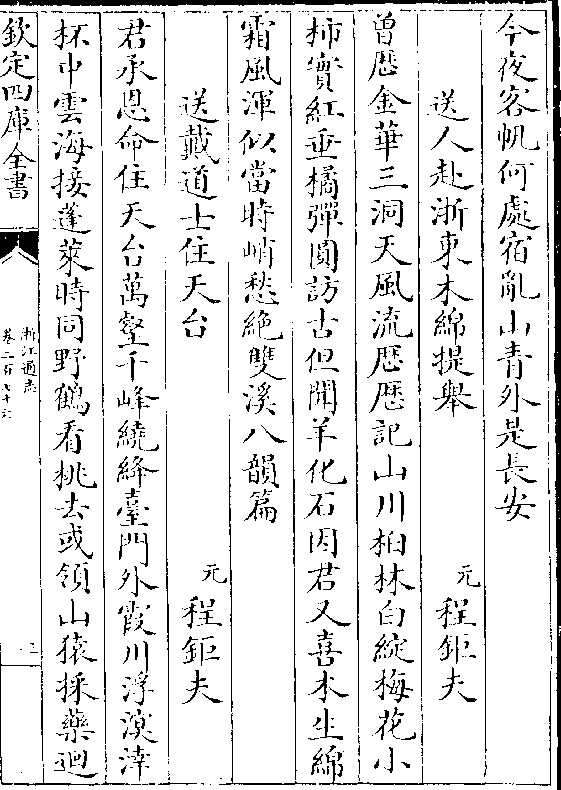 今夜客帆何處宿亂山青外是長安
送人赴浙東木綿提舉 元 程鉅夫
曾歴金華三洞天風流歴歴記山川桕林白綻梅花小
柿實紅垂橘彈圓訪古但聞羊化石因君又喜木生綿
霜風渾似當時峭愁絶雙溪八韻篇
送戴道士住天台 元 程鉅夫
君承恩命住天台萬壑千峰繞絳臺門外霞川浮溟涬
杯中雲海接蓬萊時同野鶴看桃去或領山猿採藥迴
欽定四庫全書
浙江通志
卷二百七十六